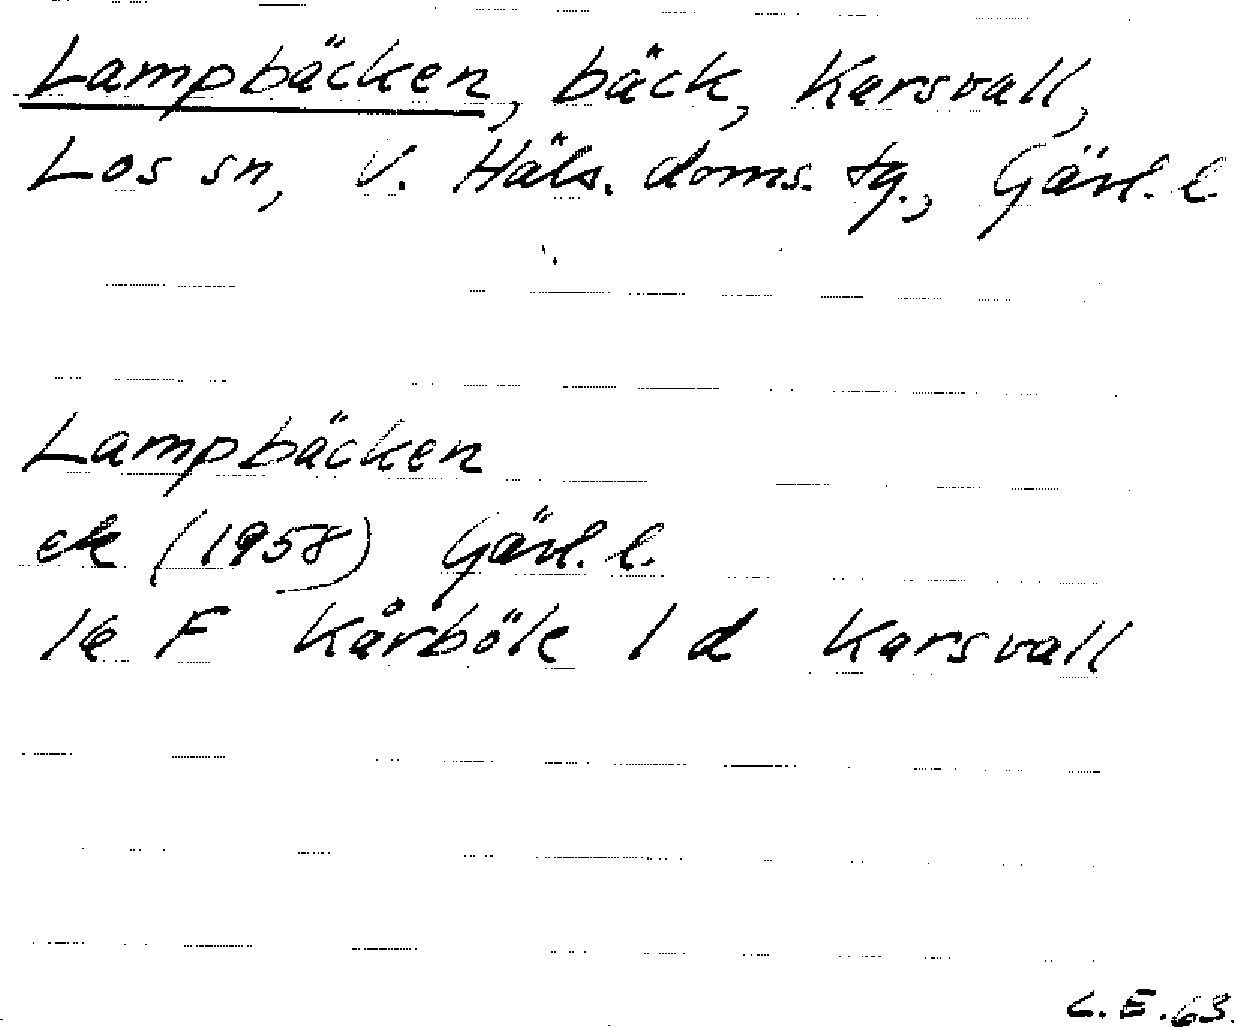 Lampbäcken, bäck, Karsvall,
Los sn, V. Häls. doms. tg., Gävl. l.
Lampbäcken
ek (1958) Gävl. l.
16 F Kårböle 1 d Karsvall
C.E.63.